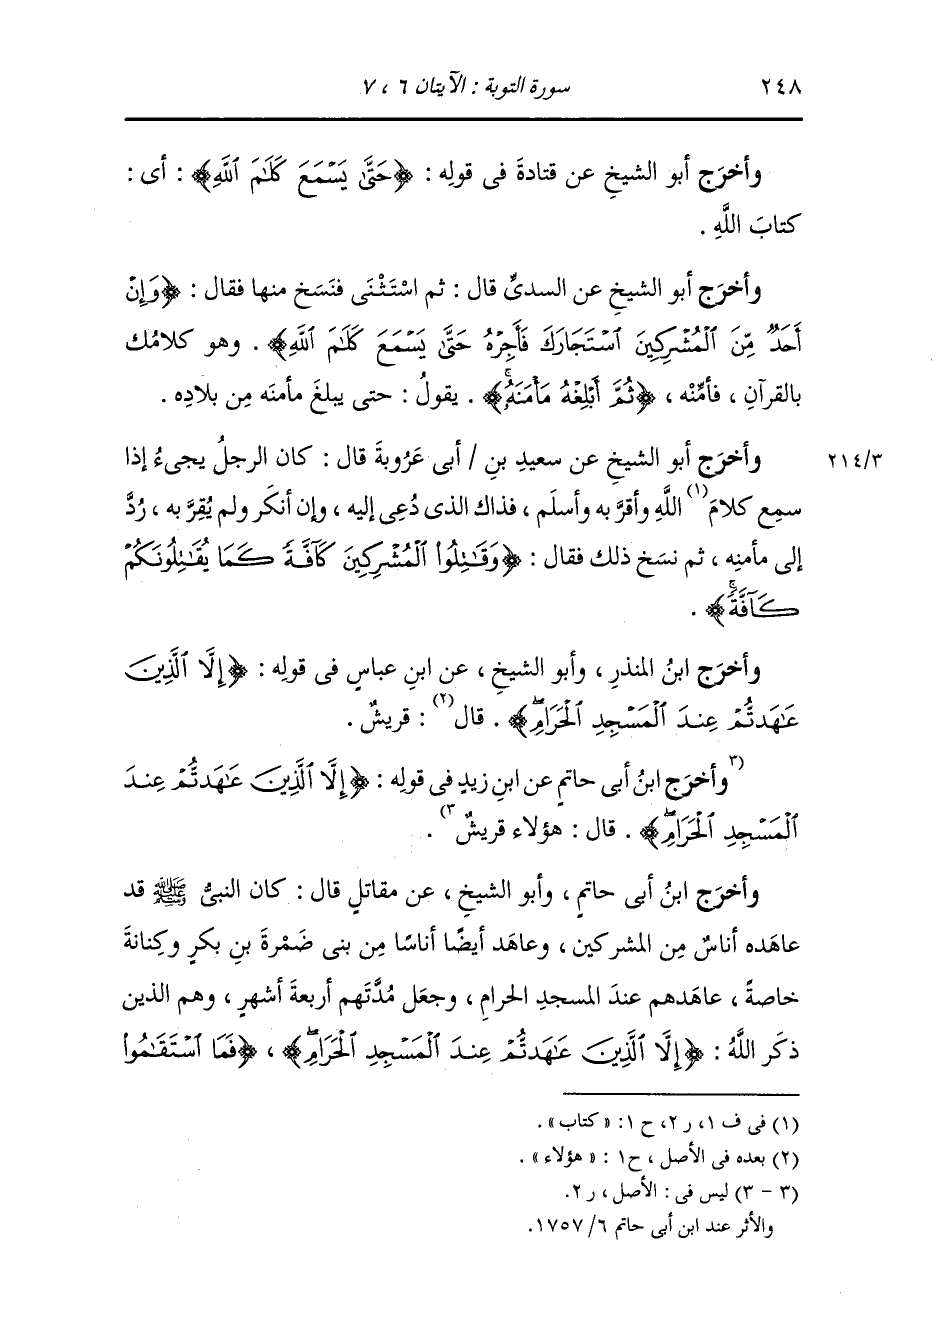 ٢٤٨ سورة التوبة : الآيتان ٦ ، ٧
وأخرَج أبو الشيخِ عن قتادةَ فى قولِه : ﴿حَتَّىٰ يَسْمَعَ كَلَٰمَ ٱللَّهِ﴾ : أى :
كتابَ اللَّهِ .
وأخرَج أبو الشيخِ عن السدىِّ قال : ثم اسْتَثْنَى فنَسَخ منها فقال : ﴿وَإِنْ
أَحَدٌ مِّنَ ٱلْمُشْرِكِينَ ٱسْتَجَارَكَ فَأَجِرْهُ حَتَّىٰ يَسْمَعَ كَلَٰمَ ٱللَّهِ﴾ . وهو كلامُك
بالقرآنِ ، فأمِّنْه ، ﴿ثُمَّ أَبْلِغْهُ مَأْمَنَهُۥۚ﴾ . يقولُ : حتى يبلغَ مأمنَه مِن بلادِه .
وأخرَج أبو الشيخِ عن سعيدِ بنِ / أبى عَرُوبةَ قال : كان الرجلُ يجىءُ إذا ٢١٤/٣
سمِع كلامَ(١) اللَّهِ وأقرَّ به وأسلَم ، فذاك الذى دُعِى إليه ، وإن أنكَر ولم يُقِرَّ به ، رُدَّ
إلى مأمنِه ، ثم نسَخ ذلك فقال : ﴿وَقَٰتِلُوا۟ ٱلْمُشْرِكِينَ كَآفَّةً كَمَا يُقَٰتِلُونَكُمْ
كَآفَّةًۚ﴾ .
وأخرَج ابنُ المنذرِ ، وأبو الشيخِ ، عن ابنِ عباسٍ فى قولِه : ﴿إِلَّا ٱلَّذِينَ
عَٰهَدتُّمْ عِندَ ٱلْمَسْجِدِ ٱلْحَرَامِۖ﴾ . قال(٢) : قريشٌ .
(٣وأخرَج ابنُ أبى حاتمٍ عن ابنِ زيدٍ فى قولِه : ﴿إِلَّا ٱلَّذِينَ عَٰهَدتُّمْ عِندَ
ٱلْمَسْجِدِ ٱلْحَرَامِۖ﴾ . قال : هؤلاء قريشٌ٣) .
وأخرَج ابنُ أبى حاتمٍ ، وأبو الشيخِ ، عن مقاتلٍ قال : كان النبىُّ ﷺ قد
عاهَده أناسٌ مِن المشركين ، وعاهَد أيضًا أناسًا مِن بنى ضَمْرةَ بنِ بكرٍ وكِنانةَ
خاصةً ، عاهَدهم عندَ المسجدِ الحرامِ ، وجعَل مُدَّتَهم أربعةَ أشهرٍ ، وهم الذين
ذكَر اللَّهُ : ﴿إِلَّا ٱلَّذِينَ عَٰهَدتُّمْ عِندَ ٱلْمَسْجِدِ ٱلْحَرَامِۖ﴾ ، ﴿فَمَا ٱسْتَقَٰمُوا۟
(١) فى ف ١، ر ٢، ح ١: « كتاب » .
(٢) بعده فى الأصل ، ح١ : « هؤلاء » .
(٣ - ٣) ليس فى : الأصل ، ر ٢.
والأثر عند ابن أبى حاتم ٦/ ١٧٥٧.